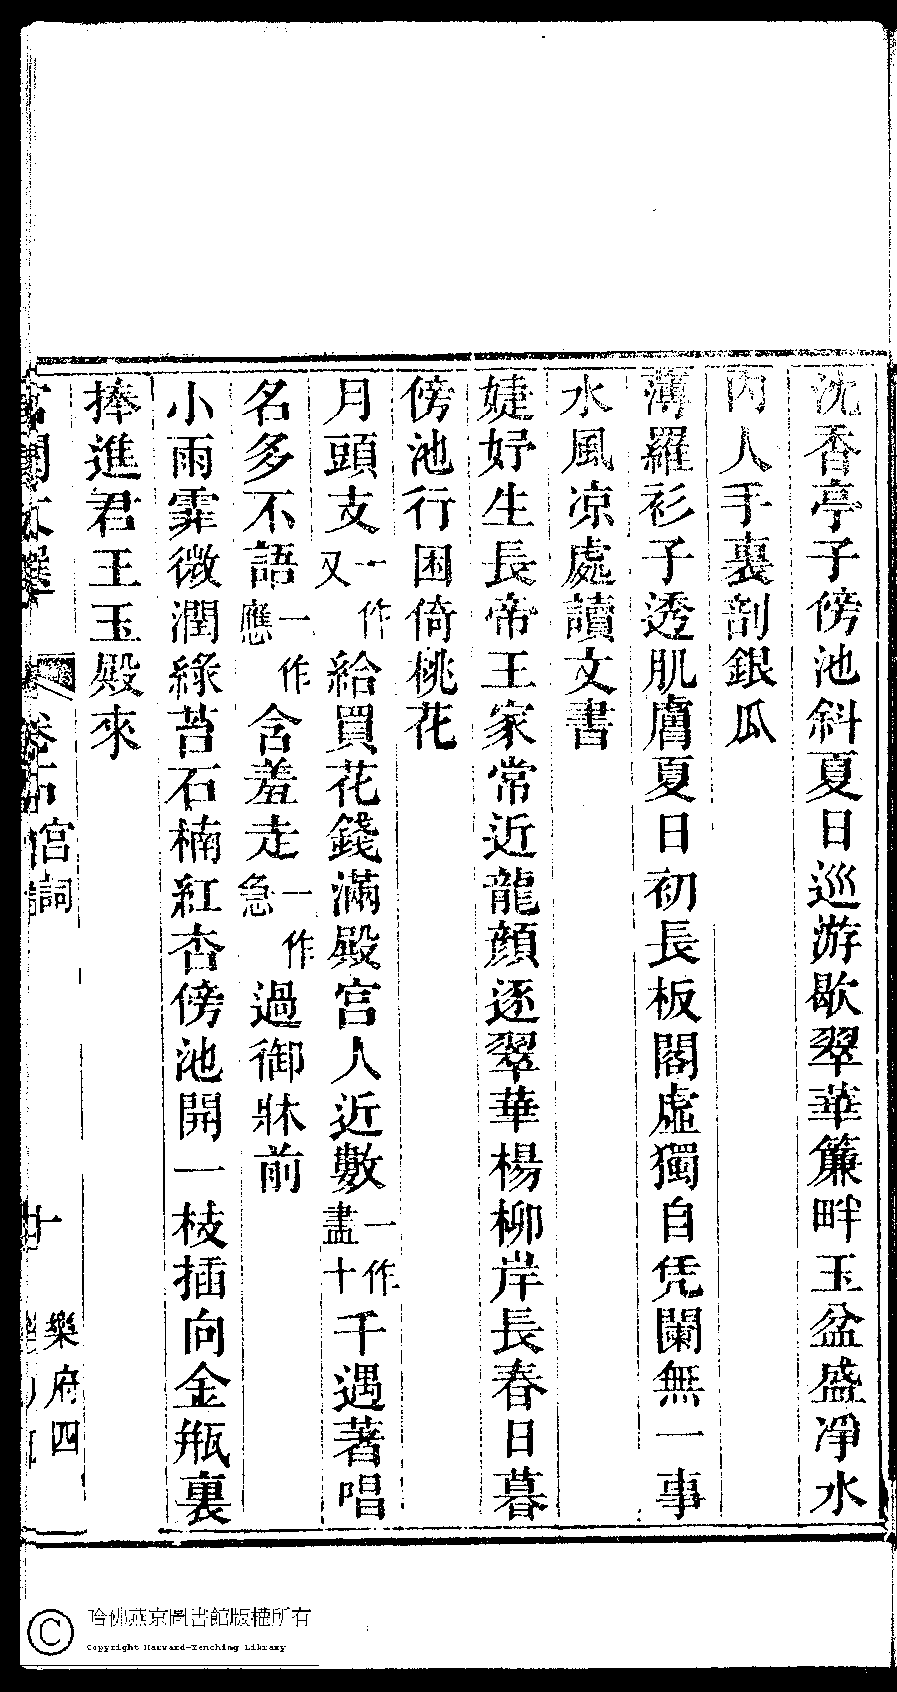 沈香亭子傍池斜夏日巡游歇翠華簾畔玉盆盛凈水
內人手裏剖銀瓜
薄羅衫子透肌膚夏日初長板閣虛獨自凭闌無一事
水風凉處讀文書
婕妤生長帝王家常近龍顔逐翠華楊柳岸長春日暮
傍池行困倚桃花
月頭支一作又給買花錢滿殿宮人近數一作盡十千遇著唱
名多不語一作應含羞走一作急過御牀前
小雨霏微潤綠苔石楠紅杏傍池開一枝插向金瓶裏
捧進君王玉殿來
宮詞
樂府四
哈佛燕京圖書館版權所有
Copyright Harvard-Yenching Library